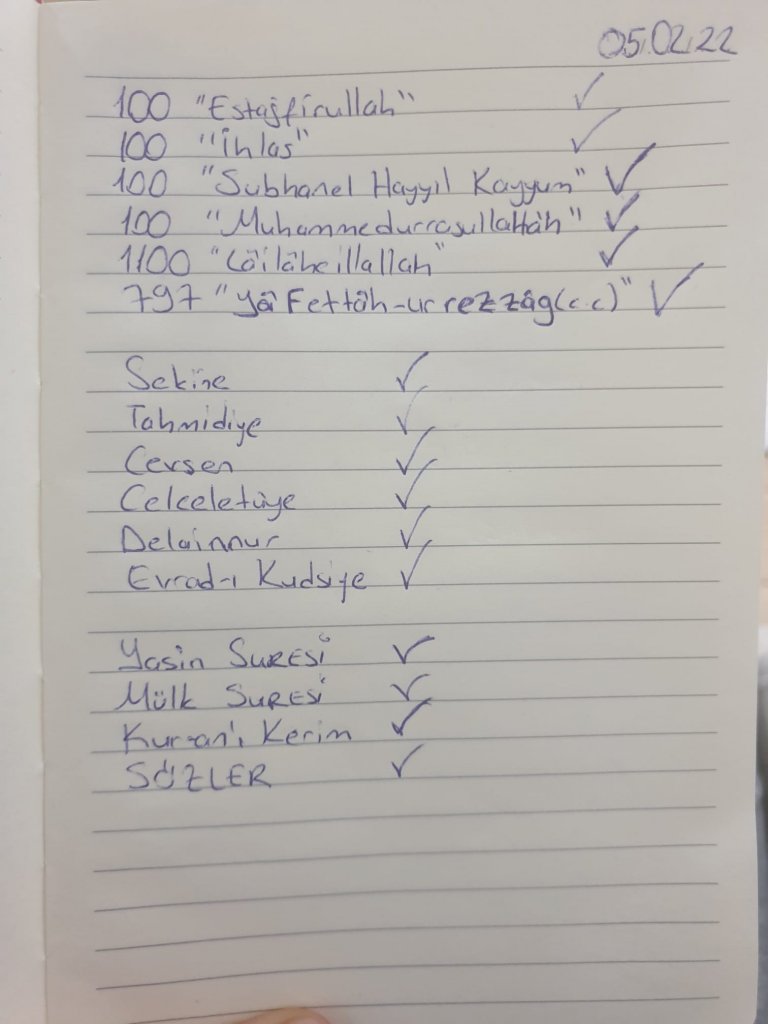 05.02.22
100 "Estağfirullah" ✓
100 "İhlas" ✓
100 "Subhanel Hayyıl Kayyum" ✓
100 "Muhammedurrasullallah" ✓
1100 "Lâilâheillallah" ✓
797 "Yâ Fettâh-ur rezzâg(c.c)" ✓
Sekine ✓
Tahmidiye ✓
Cevsen ✓
Celceletüye ✓
Delainnur ✓
Evrad-ı Kudsiye ✓
Yasin SURESİ ✓
Mülk SURESİ ✓
Kur-an'ı Kerim ✓
SÖZLER ✓